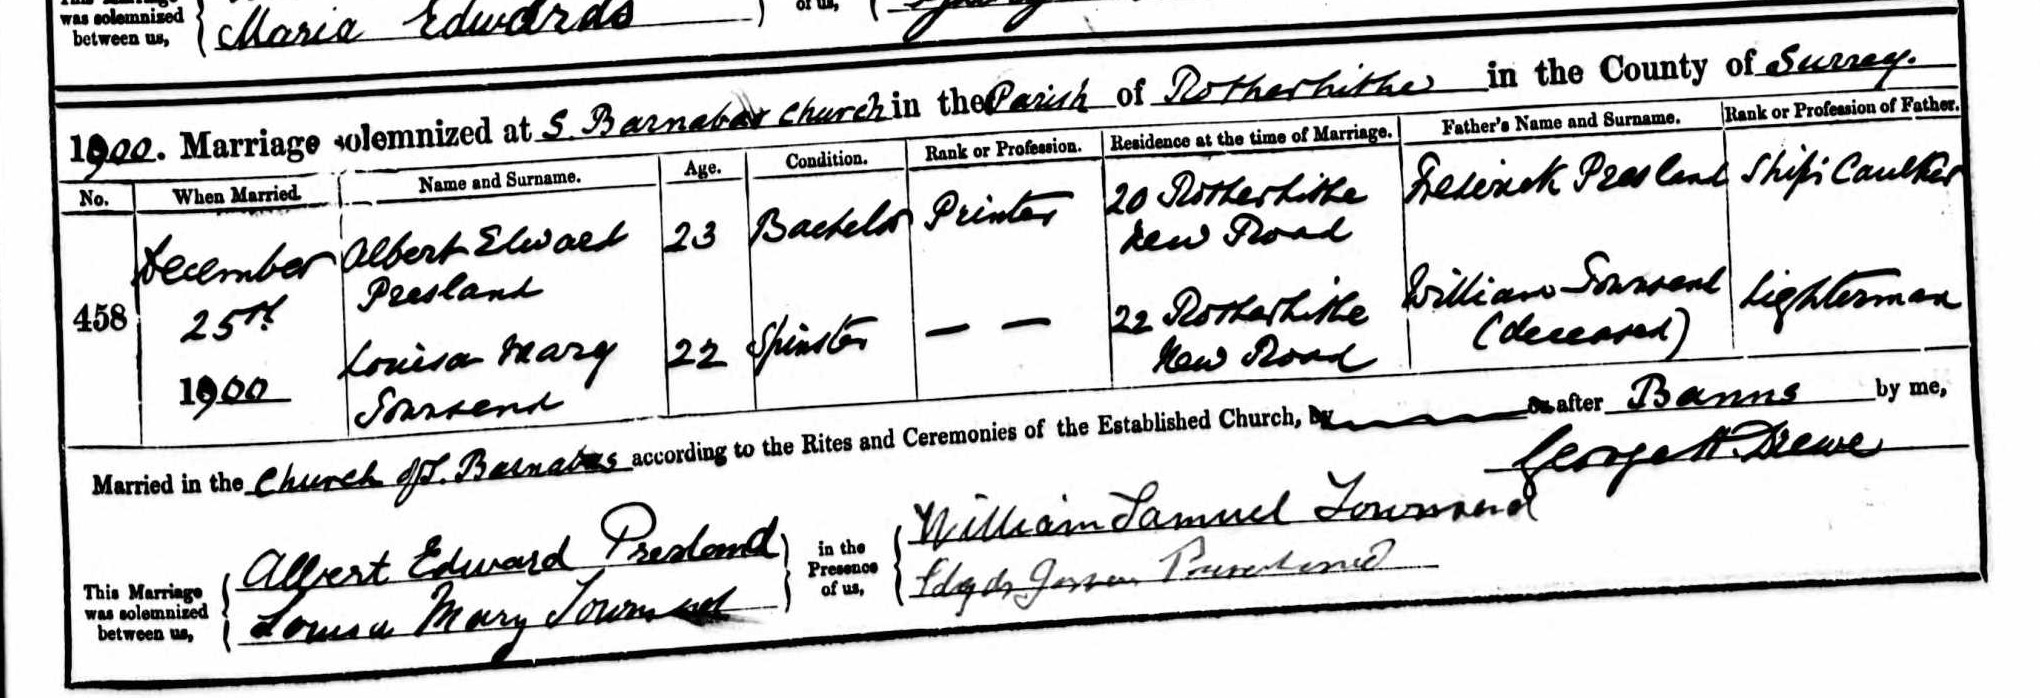 was solemnized between us, Maria Edwards of us,
1900. Marriage solemnized at S. Barnabas Church in the Parish of Rotherhithe in the County of Surrey.
No. When Married. Name and Surname. Age. Condition. Rank or Profession. Residence at the time of Marriage. Father's Name and Surname. Rank or Profession of Father.
458 December 25th 1900
Albert Edward Presland 23 Bachelor Printer 20 Rotherhithe New Road Frederick Presland Ship's Caulker
Louisa Mary Townsend 22 Spinster — — 22 Rotherhithe New Road William Townsend (deceased) Lighterman
Married in the Church of S. Barnabas according to the Rites and Ceremonies of the Established Church, by or after Banns by me,
George H. Drewe
This Marriage was solemnized between us, Albert Edward Presland
Louisa Mary Townsend
in the Presence of us, William Samuel Townsend